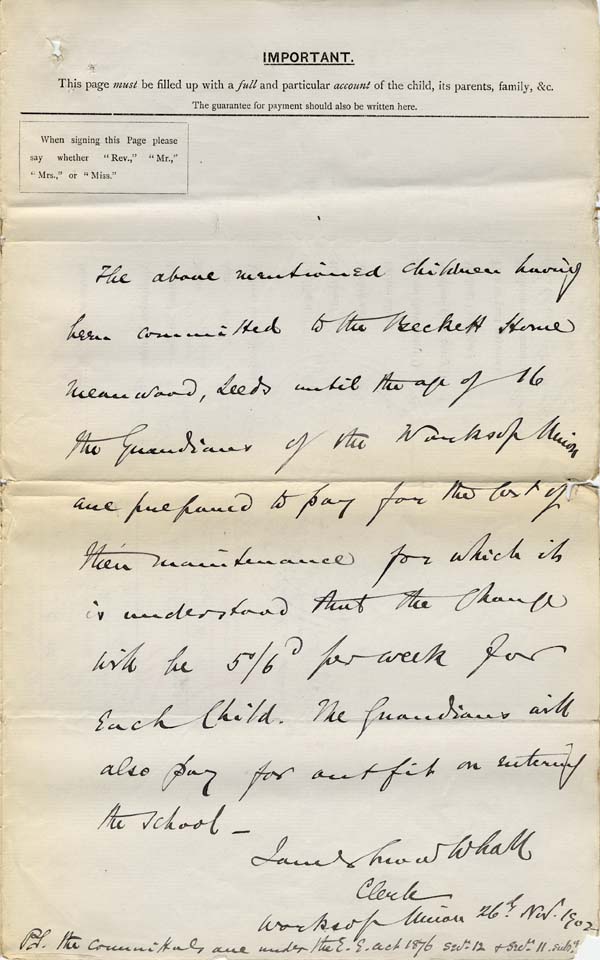 IMPORTANT.
This page must be filled up with a full and particular account of the child, its parents, family, &c.
The guarantee for payment should also be written here.
When signing this Page please
say whether "Rev.," "Mr.,"
"Mrs.," or "Miss."
The above mentioned children having
been committed to the Beckett Home
Meanwood, Leeds until the age of 16
the Guardians of the Worksop Union
are prepared to pay for the cost of
their maintenance for which it
is understood that the charge
will be 5/6d per week for
Each Child. The Guardians will
also pay for outfit on entering
the school —
James Whall
Clerk
Worksop Union 26th Nov. 1902
PS. the committals are under the E. E. act 1876 sec. 12 & sec. 11. sub.